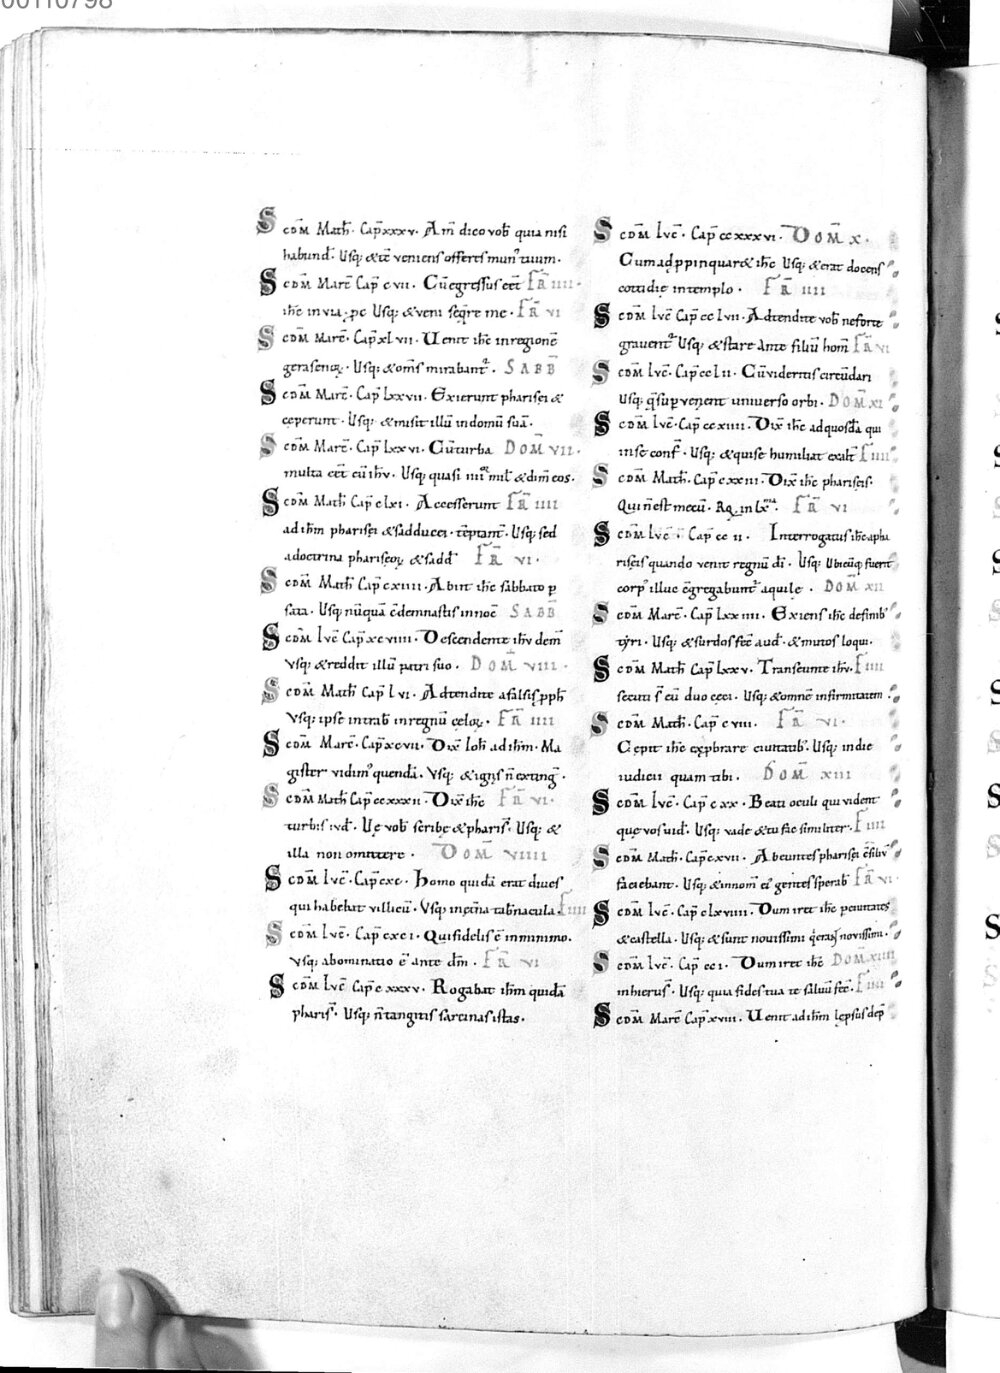 00110798
Scdm̄ Math̄. Cap̄ xxxv. Am̄ dico vob̄ quia nisi
habund̄. Usq; &tē veniens offeres mun̄ tuum.
Scdm̄ Marc̄ Cap̄ cvii. Cū egressus eēt FR̄ IIII.
ih̄c in via. pc Usq; & veni seq̄re me. FR̄ VI
Scdm̄ Marc̄. Cap̄ xlvii. Uenit ih̄c in regionē
gerasenoꝝ. Usq; & om̄s mirabant᷑. SABB̄
Scdm̄ Marc̄. Cap̄ lxxvii. Exierunt pharisei &
ceperunt. Usq; & misit illū in domū suā.
Scdm̄ Marc̄. Cap̄ lxxvi. Cū turba DOM̄ VII.
multa eēt cū ih̄v. Usq; quasi iiii mil̄ & dim̄ eos.
Scdm̄ Math̄ Cap̄ clxi. Accesserunt FR̄ IIII
ad ih̄m pharisei & sadducei. tēptant̄. Usq; sed
a doctrina phariseoꝝ & sadd̄ FR̄ VI.
Scdm̄ Math̄ Cap̄ cxiiii. Abiit ih̄c sabbato p
sata. Usq; nūquā c̄demnastis innoc̄ SABB̄
Scdm̄ Lvc̄ Cap̄ xcviiii. Descendente ih̄v dem̄
Vsq; & reddit illū patri suo. DOM̄ VIII.
Scdm̄ Math̄ Cap̄ lvi. Adtendite a falsis pph̄
Vsq; ipse intrab̄ in regnū celoꝝ. FR̄ IIII
Scdm̄ Marc̄. Cap̄ xcvii. Dix̄ Ioh̄ ad ih̄m. Ma
gister vidim᷒ quendā. Vsq; & ignis n̄ extinḡ.
Scdm̄ Math̄ Cap̄ ccxxxii. Dix̄ ih̄c FR̄ VI.
turbis ivd̄. Ue vob̄ scribe & pharis̄. Usq; &
illa non omittere. DOM̄ VIIII
Scdm̄ Lvc̄. Cap̄ cxc. Homo quidā erat dives
qui habebat villicū. Vsq; in et̄na tab̄nacula. F IIII
Scdm̄ Lvc̄. Cap̄ cxci. Qui fidelis ē in minimo.
Vsq; abominatio ē ante dm̄. FR̄ VI
Scdm̄ Lvc̄ Cap̄ cxxxv. Rogabat ih̄m quidā
pharis̄. Usq; n̄ tangitis sarcinas istas.
Scdm̄ Lvc̄. Cap̄ ccxxxvi. DOM̄ X.
Cum adppinquar& ih̄c Usq; & erat docens
cottidie in templo. FR̄ IIII
Scdm̄ Lvc̄ Cap̄ cclvii. Adtendite vob̄ ne forte
gravent᷑ Usq; & stare ante filiū hom̄ FR̄ VI
Scdm̄ Lvc̄. Cap̄ cclii. Cū videritis circūdari
Usq; q̄ supvenent universo orbi. DOM̄ XI
Scdm̄ Lvc̄. Cap̄ ccxiiii. Dix̄ ih̄c ad quosdā qui
in se conf̄. Usq; & qui se humiliat exalt̄ F IIII
Scdm̄ Math̄. Cap̄ cxxiii. Dix̄ ih̄c phariseis.
Qui n̄ est mecū. Rq̄ in lx̄ma. FR̄ VI
Scdm̄ Lvc̄. Cap̄ ccii. Interrogatus ih̄c a pha
riseis quando venit regnū dī. Usq; Ubicūq; fuerit
corp᷒ illuc c̄gregabunt᷑ aquile. DOM̄ XII
Scdm̄ Marc̄. Cap̄ lxxiiii. Exiens ih̄c de finib̄
tyri. Usq; & surdos fec̄ aud̄. & mutos loqui.
Scdm̄ Math̄ Cap̄ lxxv. Transeunte ih̄v. F IIII
secuti s̄ eū duo ceci. Usq; & omnē infirmitatem.
Scdm̄ Math̄. Cap̄ cviii. FR̄ VI.
Cepit ih̄c expbrare civitatib᷒. Usq; in die
iudicii quam tibi. DOM̄ XIII
Scdm̄ Lvc̄. Cap̄ cxx. Beati oculi qui vident
que vos uid̄. Usq; vade & tu fac similiter. F IIII
Scdm̄ Math̄. Cap̄ cxvii. Abeuntes pharisei c̄siliv̄
faciebant. Usq; & in nom̄ ei᷒ gentes sperab̄ FR̄ VI.
Scdm̄ Lvc̄. Cap̄ clxviiii. Dum iret ih̄c p civitates
& castella. Usq; & sunt novissimi q̄ erāt novissimi.
Scdm̄ Lvc̄. Cap̄ cci. Dum iret ih̄c DOM̄ XIIII
in hierus̄. Usq; quia fides tua te salvū fec̄. F IIII
Scdm̄ Marc̄ Cap̄ xviii. Uenit ad ih̄m lepsus dep̄